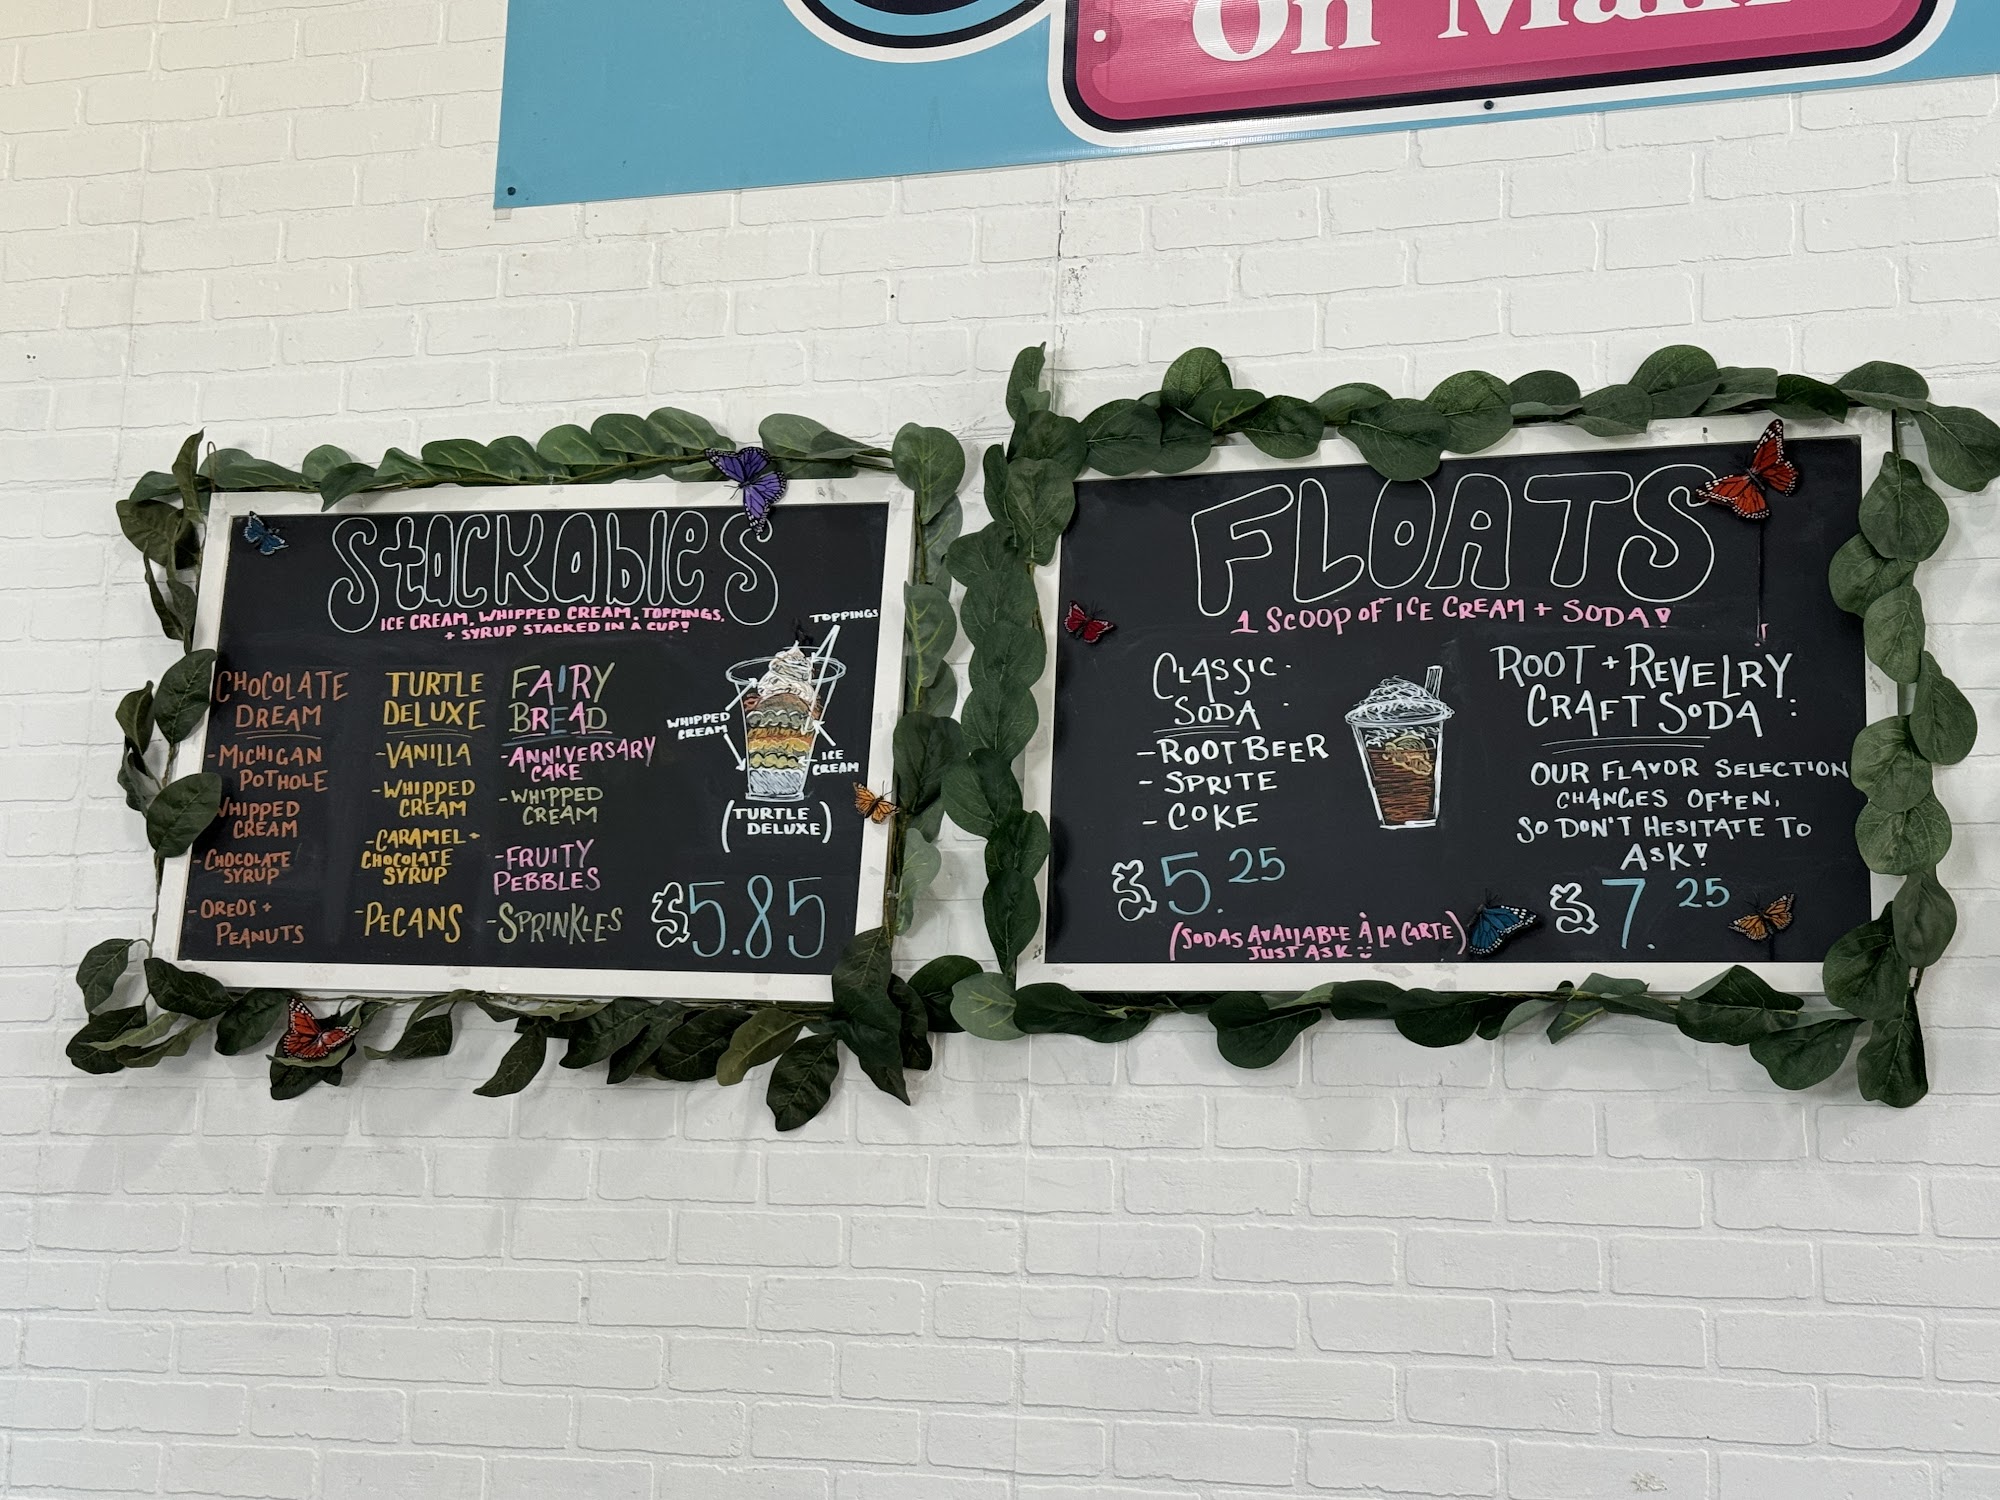 On Main
Stackables
ICE CREAM, WHIPPED CREAM, TOPPINGS,
+ SYRUP STACKED IN A CUP!
CHOCOLATE
DREAM
-MICHIGAN
POTHOLE
WHIPPED
CREAM
-CHOCOLATE
SYRUP
-OREOS +
PEANUTS
TURTLE
DELUXE
-VANILLA
-WHIPPED
CREAM
-CARAMEL +
CHOCOLATE
SYRUP
-PECANS
FAIRY
BREAD
-ANNIVERSARY
CAKE
-WHIPPED
CREAM
-FRUITY
PEBBLES
-SPRINKLES
TOPPINGS
WHIPPED
CREAM
ICE
CREAM
(TURTLE
DELUXE)
$5.85
FLOATS
1 SCOOP OF ICE CREAM + SODA!
CLASSIC
SODA
-ROOT BEER
- SPRITE
- COKE
$5.25
(SODAS AVAILABLE À LA CARTE)
JUST ASK
ROOT + REVELRY
CRAFT SODA:
OUR FLAVOR SELECTION
CHANGES OFTEN,
SO DON'T HESITATE TO
ASK!
$7.25